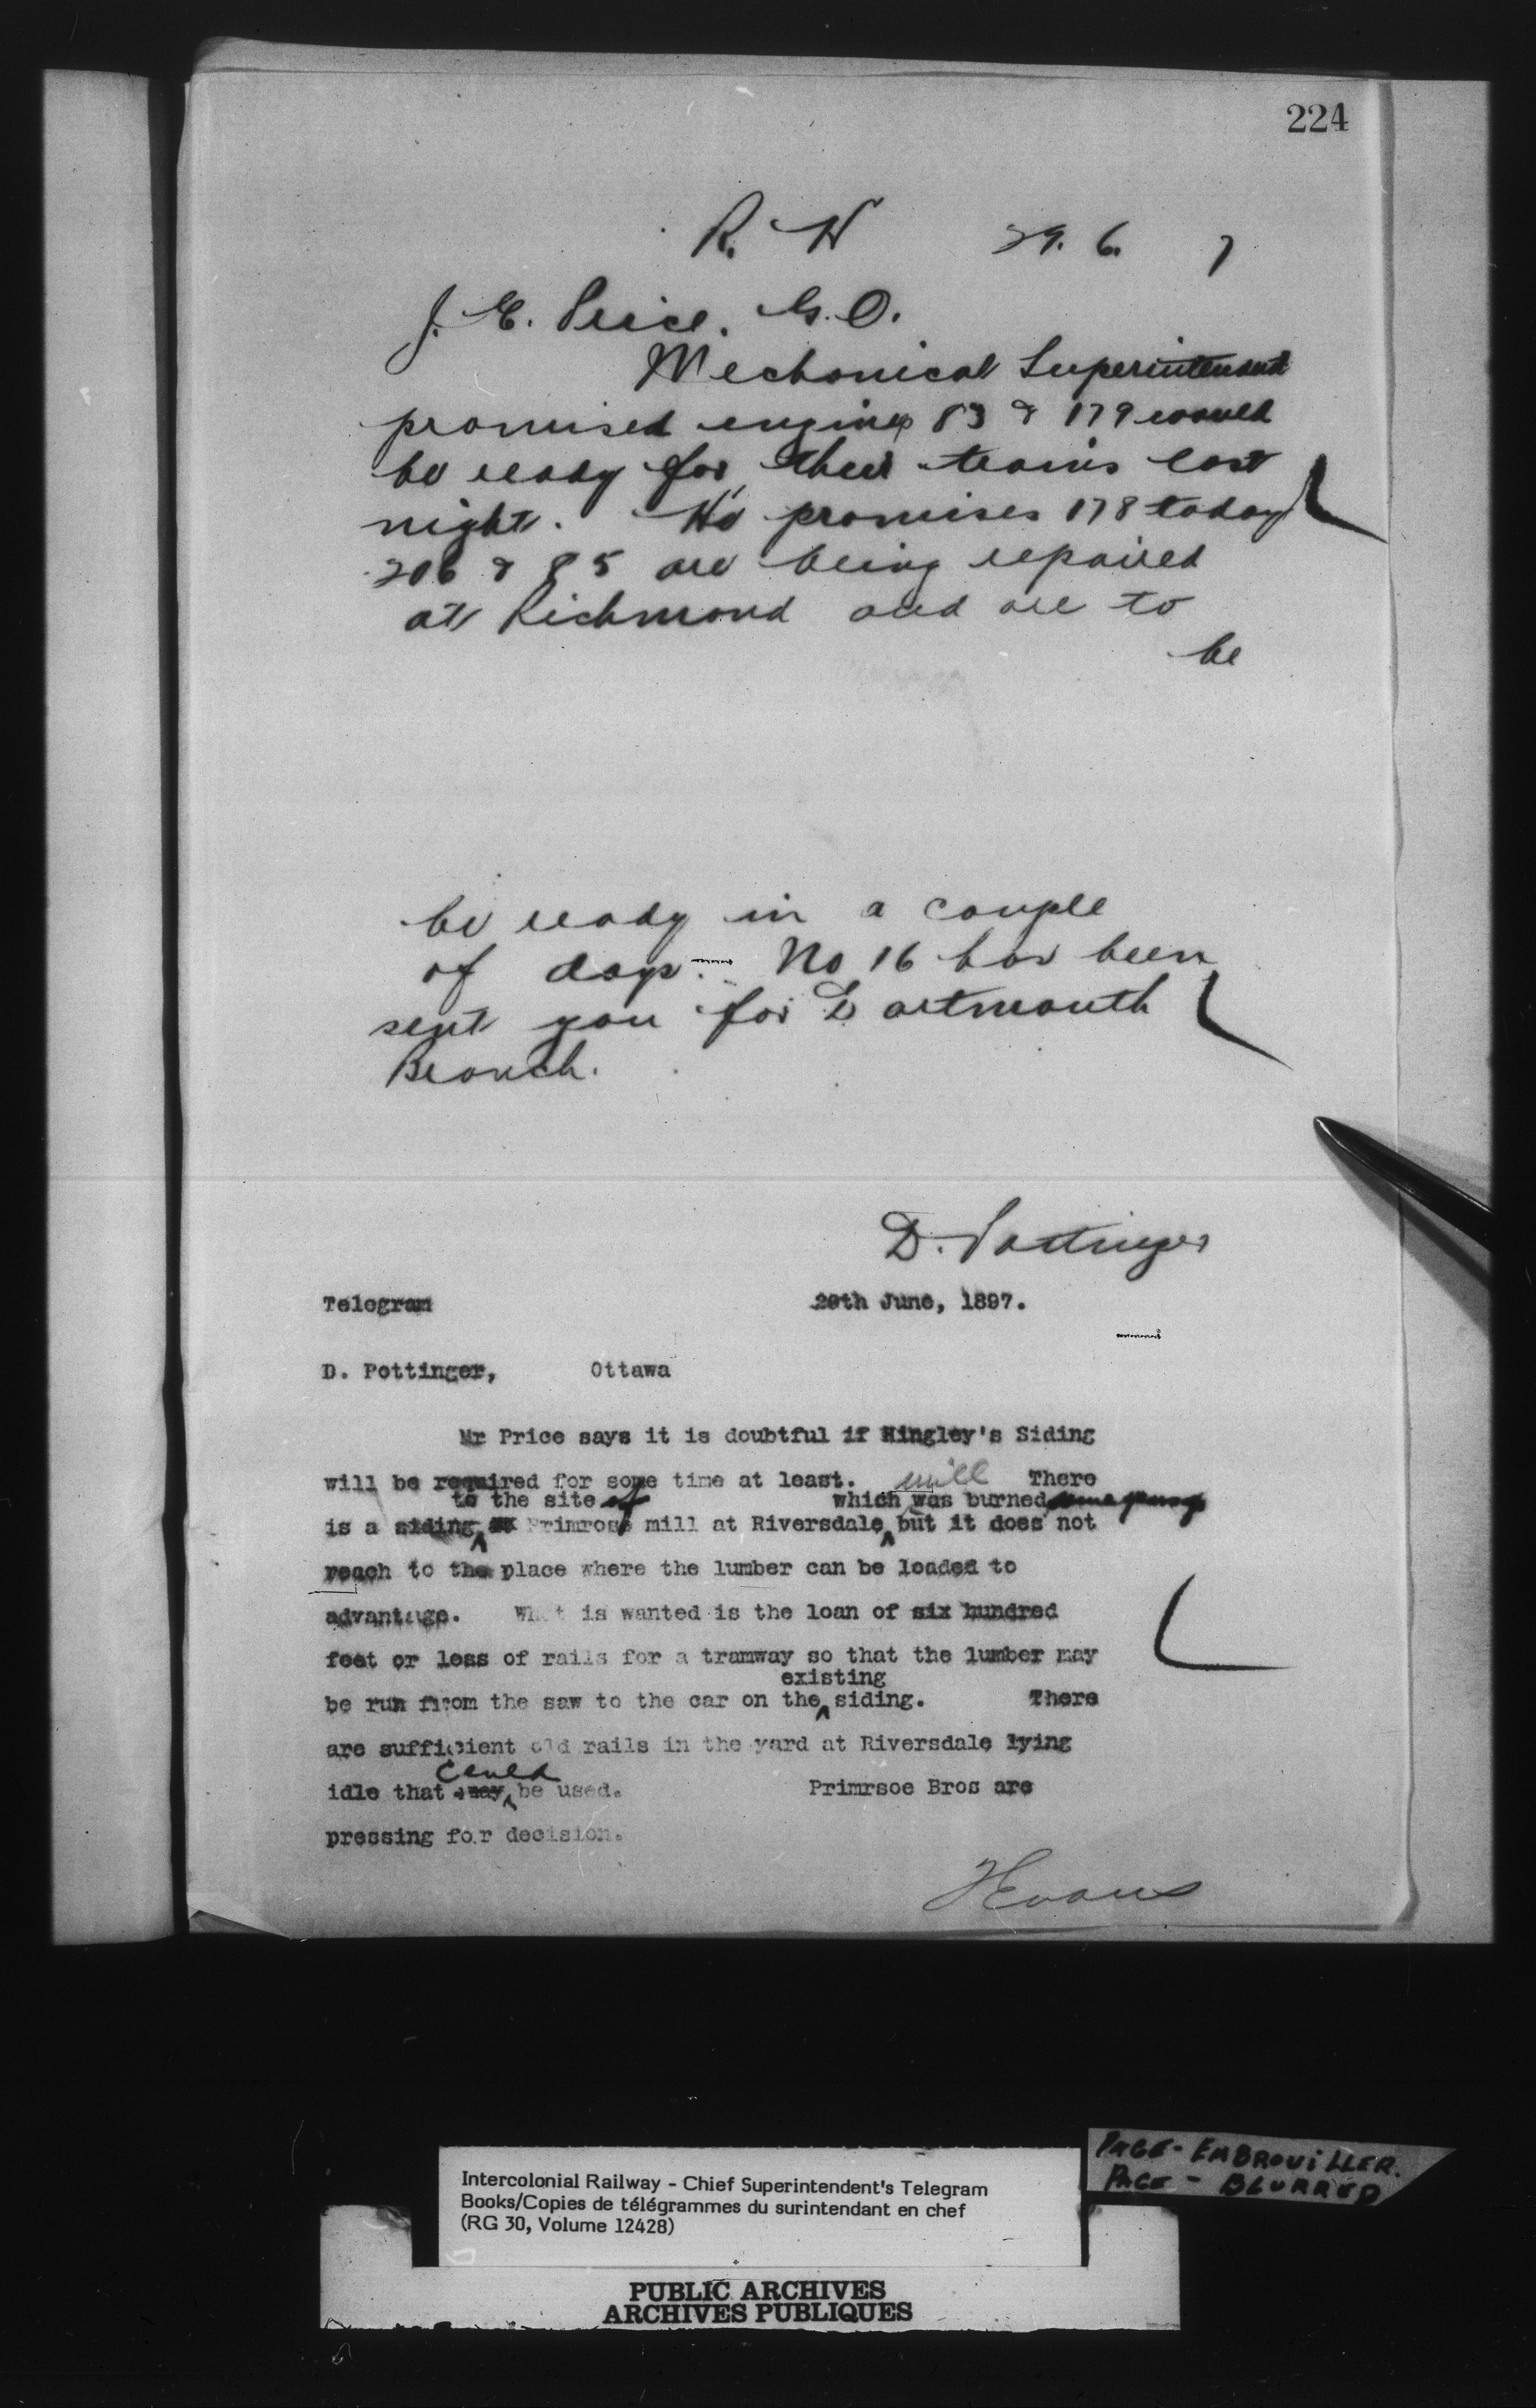 224
R. W 29. 6. 7
J. E. Price. G.O.
Mechanical Superintendent
promised engines 83 & 179 would
be ready for their trains last
night. He promises 178 today
206 & 85 are being repaired
at Richmond and are to
be
be ready in a couple
of days. No 16 has been
sent you for Dartmouth
Branch.
D. Pottinger
Telegram 29th June, 1897.
D. Pottinger, Ottawa
Mr Price says it is doubtful if Hingley's Siding
will be required for some time at least. mill There
to the site of which was burned
is a siding Primrose mill at Riversdale but it does not
reach to the place where the lumber can be loaded to
advantage. What is wanted is the loan of six hundred
feet or less of rails for a tramway so that the lumber may
existing
be run from the saw to the car on the siding. There
are sufficient old rails in the yard at Riversdale lying
could
idle that may be used. Primrsoe Bros are
pressing for decision.
HEvans
PAGE - EMBROUILLER.
PAGE - BLURRED
Intercolonial Railway - Chief Superintendent's Telegram
Books/Copies de télégrammes du surintendant en chef
(RG 30, Volume 12428)
PUBLIC ARCHIVES
ARCHIVES PUBLIQUES